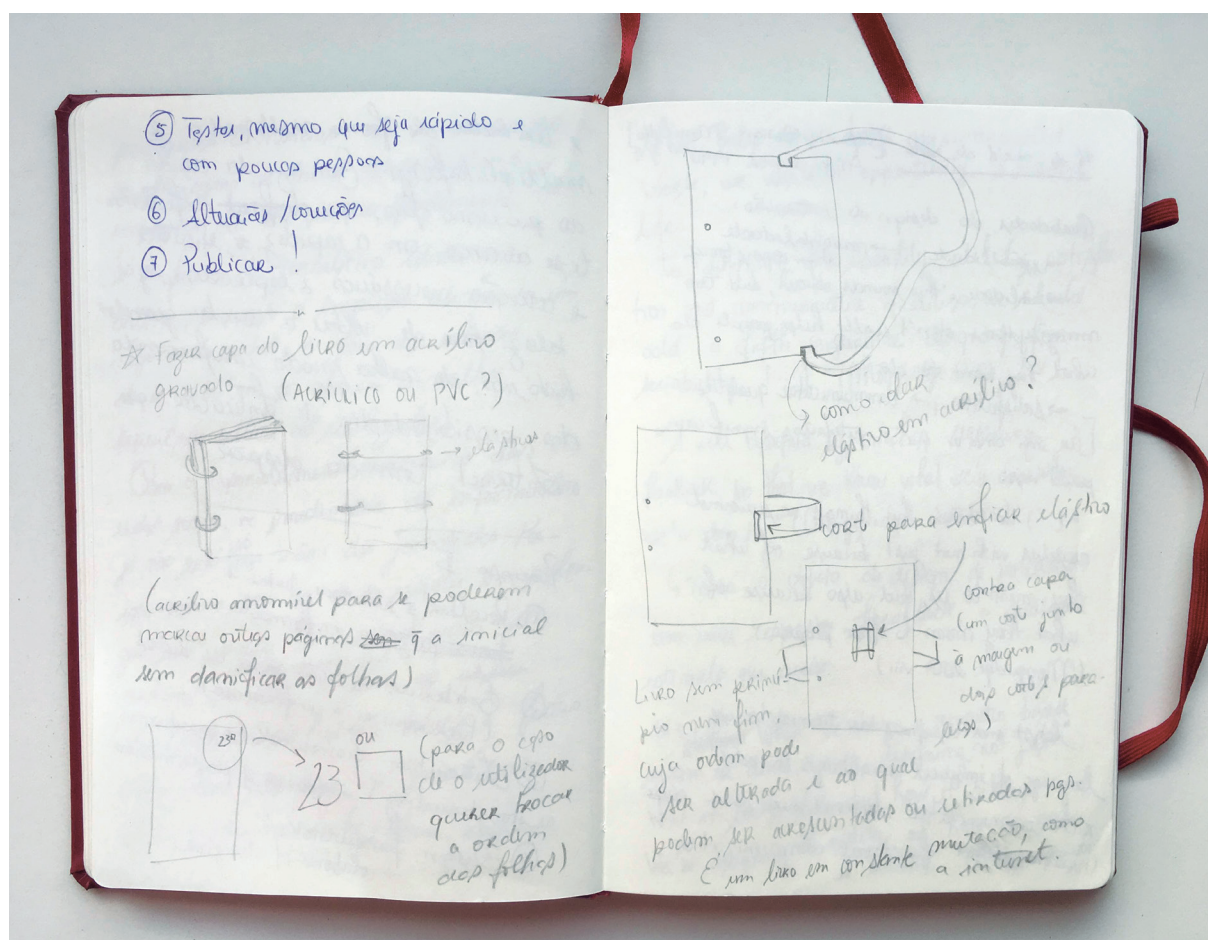 ⑤ Testar, mesmo que seja rápido e
com poucas pessoas
⑥ Alterações / correções
⑦ Publicar!
☆ Fazer capa do livro em acrílico
gravado (ACRÍLICO OU PVC?)
→ elásticos
(acrílico amovível para se poderem
marcar outras páginas q̄ a inicial
sem danificar as folhas)
23º
23
ou
(para o caso
de o utilizador
querer trocar
a ordem
das folhas)
→ como dar
elástico em acrílico?
corte para enfiar elástico
contra capa
(um corte junto
à margem ou
dois cortes para-
lelos)
Livro sem princí-
pio nem fim.
cuja ordem pode
ser alterada e ao qual
podem ser acrescentadas ou retiradas pgs.
É um livro em constante mutação, como
a internet.